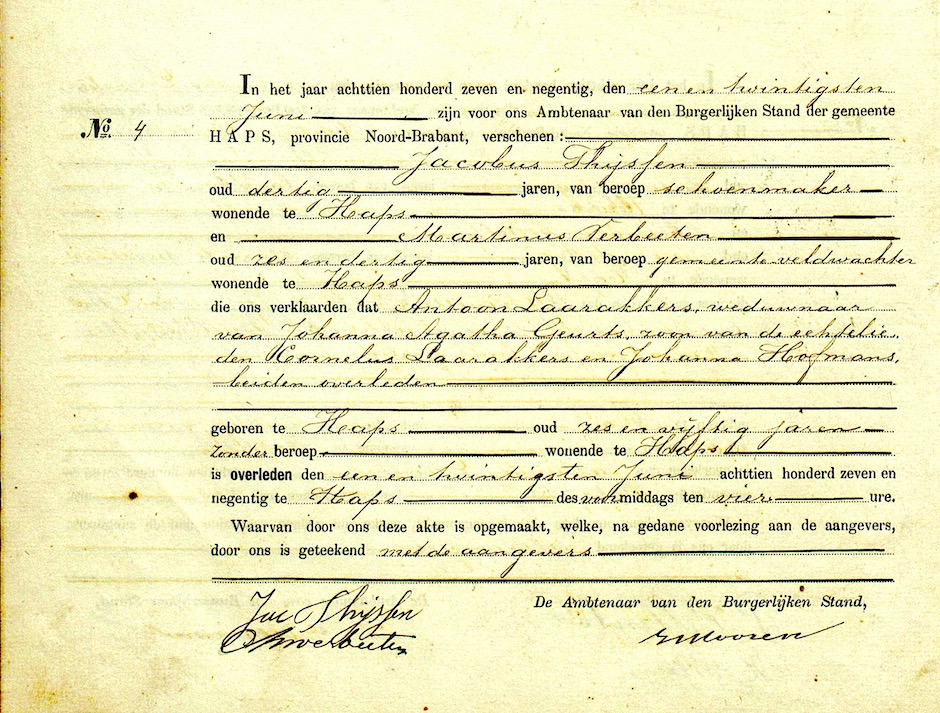 In het jaar achttien honderd zeven en negentig, den een en twintigsten
Juni zijn voor ons Ambtenaar van den Burgerlijken Stand der gemeente
No. 4 HAPS, provincie Noord-Brabant, verschenen :
Jacobus Thijssen
oud dertig jaren, van beroep schoenmaker
wonende te Haps
en Martinus Verbeeten
oud zes en dertig jaren, van beroep gemeente-veldwachter
wonende te Haps
die ons verklaarden dat Antoon Laarakkers, weduwnaar
van Johanna Agatha Geurts, zoon van de echtelie,
den Cornelus Laarakkers en Johanna Hofmans,
beiden overleden
geboren te Haps oud zes en vijftig jaren
zonder beroep wonende te Haps
is overleden den een en twintigsten Juni achttien honderd zeven en
negentig te Haps des voormiddags ten vier ure.
Waarvan door ons deze akte is opgemaakt, welke, na gedane voorlezing aan de aangevers,
door ons is geteekend met de aangevers
De Ambtenaar van den Burgerlijken Stand,
Jac Thijssen